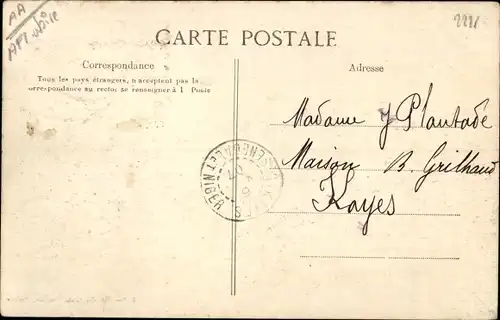 AA
2221
CARTE POSTALE
Correspondance
Tous les pays étrangers, n'acceptent pas la
correspondance au recto; se renseigner à l Poste
Adresse
Madame J Plantade
Maison B. Grilhaud
Kayes
ET NIGER